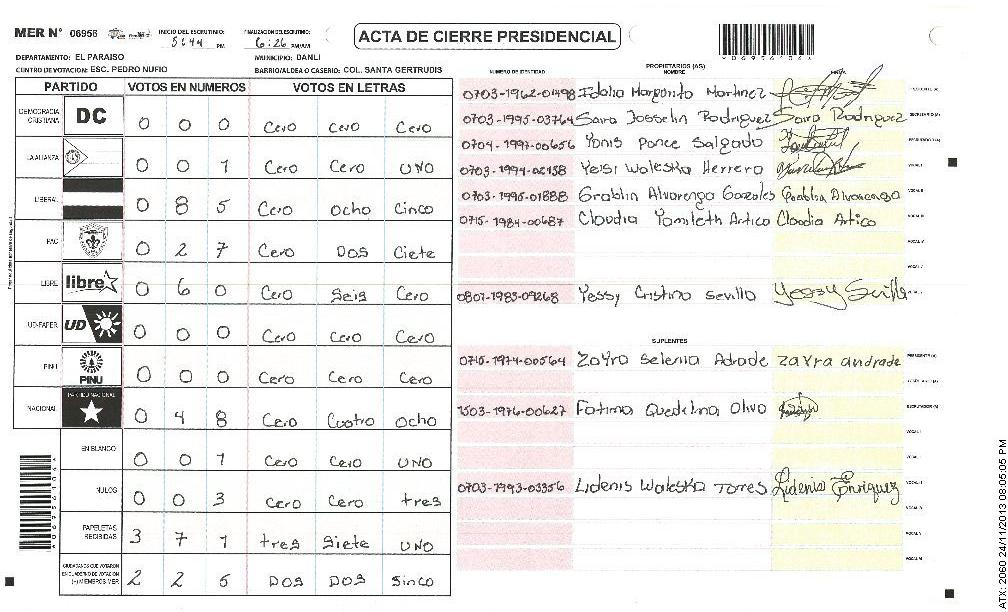 MER N° 06956 INICIO DEL ESCRUTINIO: 5:44 PM FINALIZACION DEL ESCRUTINIO: 6:26 PM/AM
ACTA DE CIERRE PRESIDENCIAL
DEPARTAMENTO: EL PARAISO MUNICIPIO: DANLI
CENTRO DE VOTACION: ESC. PEDRO NUFIO BARRIO/ALDEA O CASERIO: COL. SANTA GERTRUDIS
PARTIDO VOTOS EN NUMEROS VOTOS EN LETRAS
DEMOCRACIA CRISTIANA DC 0 0 0 Cero Cero Cero
LA ALIANZA 0 0 1 Cero Cero UNO
LIBERAL 0 8 5 Cero Ocho Cinco
PAC 0 2 7 Cero DOS Ciete
LIBRE libre 0 6 0 Cero Seis Cero
UD-FAPER UD 0 0 0 Cero Cero Cero
PINU PINU 0 0 0 Cero Cero Cero
NACIONAL PARTIDO NACIONAL 0 4 8 Cero Cuatro ocho
EN BLANCO 0 0 1 Cero Cero UNO
NULOS 0 0 3 Cero Cero tres
PAPELETAS RECIBIDAS 3 7 1 tres Siete UNO
CIUDADANOS QUE VOTARON EN CUADERNO DE VOTACION (+) MIEMBROS MER 2 2 5 DOS DOS Sinco
PROPIETARIOS (AS)
NUMERO DE IDENTIDAD NOMBRE FIRMA
0703-1962-01498 Idalia Margarita Martinez PRESIDENTE (A)
0703-1995-03764 Sara Josselin Rodriguez Sara Rodriguez SECRETARIO (A)
0704-1997-00656 Yonis Ponce Salgado ESCRUTADOR (A)
0703-1994-02158 Yeisi Waleska Herrero VOCAL I
0703-1995-01888 Grablin Alvarenga Gonzales Grablin Alvarenga VOCAL II
0715-1984-00687 Claudia Yamileth Artica Claudia Artica VOCAL III
VOCAL IV
VOCAL V
0801-1983-09268 Yessy Cristina Sevilla Yessy Sevilla
SUPLENTES
0715-1974-00564 Zayra Selenia Adrade zayra andrade PRESIDENTE (A)
SECRETARIO (A)
1503-1976-00627 Fatima Quedelina Olivo ESCRUTADOR (A)
VOCAL I
0703-1993-03356 Lidenis Waleska Torres Lidenis Enriquez
ATX: 2060 24/11/2013 08:05:05 PM